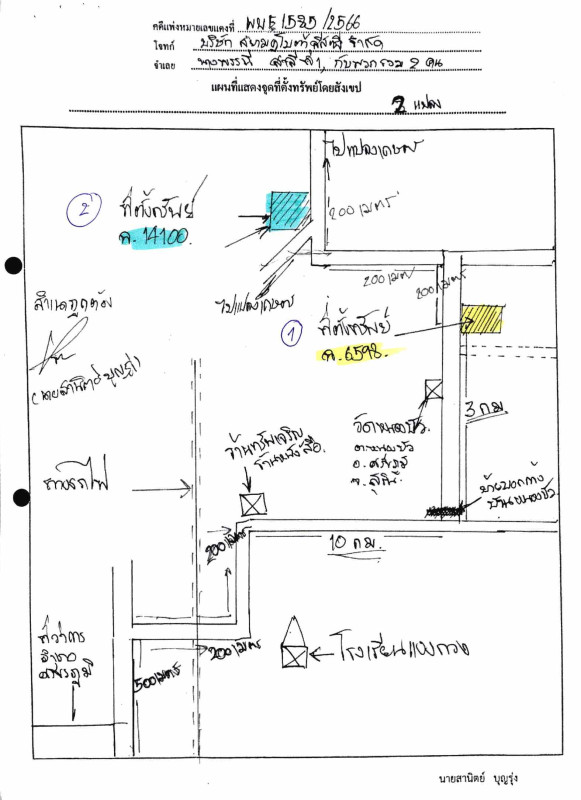 คดีแพ่งหมายเลขแดงที่ ผบE1585/2566
โจทก์ บริษัท
จำเลย นางพรรณี ที่ 1, กับพวกรวม 2 คน
แผนที่แสดงจุดที่ตั้งทรัพย์โดยสังเขป
2 แปลง
ไปแปลงเกษตร
200 เมตร
2
ที่ตั้งทรัพย์
ฉ. 14100.
200 เมตร
200 เมตร
ไปแปลงเกษตร
สำเนาถูกต้อง
1
ที่ตั้งทรัพย์
ฉ. 6598.
(นายสานิตย์ บุญรุ่ง)
3 กม.
วัดหนองบัว.
ต.หนองบัว
อ.ศีขรภูมิ
จ.สุรินทร์
ร้านทรัพย์เจริญ
ร้านหนังสือ.
ทางรถไฟ
ป้ายบอกทาง
บ้านหนองบัว
200 เมตร
10 กม.
ที่ว่าการ
อำเภอ
ศีขรภูมิ
200 เมตร
500 เมตร
นายสานิตย์ บุญรุ่ง